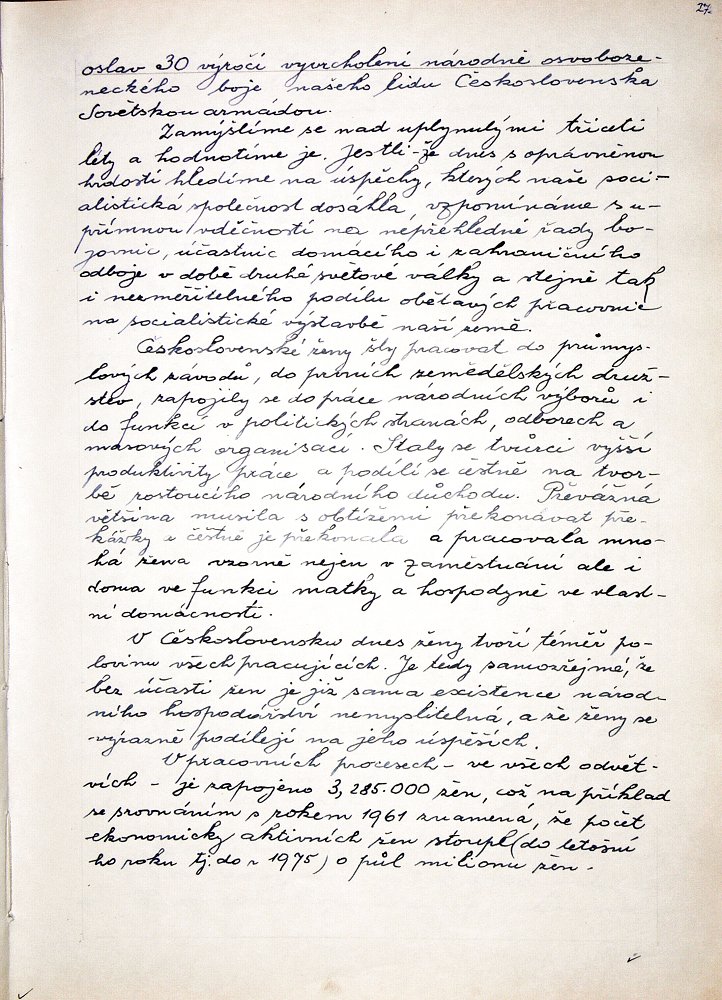 27.
oslav 30 výročí vyvrcholení národně osvoboze-
neckého boje našeho lidu Československa
Sovětskou armádou.
Zamýslíme se nad uplynulými třiceti
léty a hodnotíme je. Jestli-že dnes s oprávněnou
hrdostí hledíme na úspěchy, kterých naše soci-
alistická společnost dosáhla, vzpomínáme s u-
přímnou vděčností na nepřehledné řady bo-
jovnic, účastnic domácího i zahraničního
odboje v době druhé světové války a stejně tak
i nezměřitelného podílu obětavých pracovnic
na socialistické výstavbě naší země.
Československé ženy šly pracovat do průmys-
lových závodů, do prvních zemědělských druž-
stev, zapojily se do práce národních výborů i
do funkcí v politických stranách, odborech a
masových organisací. Staly se tvůrci vyšší
produktivity práce a podílí se čestně na tvor-
bě rostoucího národního důchodu. Převážná
většina musila s obtížemi překonávat pře-
kážky a čestně je překonala a pracovala mno-
há žena vzorně nejen v zaměstnání ale i
doma ve funkci matky a hospodyně ve vlast-
ní domácnosti.
V Československu dnes ženy tvoří téměř po-
lovinu všech pracujících. Je tedy samozřejmé, že
bez účasti žen je již sama existence národ-
ního hospodářství nemyslitelná, a že ženy se
výrazně podílejí na jeho úspěších.
V pracovních procesech - ve všech odvět-
vích - je zapojeno 3,285.000 žen, což na příklad
se srovnáním s rokem 1961 znamená, že počet
ekonomicky aktivních žen stoupl (do letošní
ho roku tj. do r 1975) o půl milionu žen.